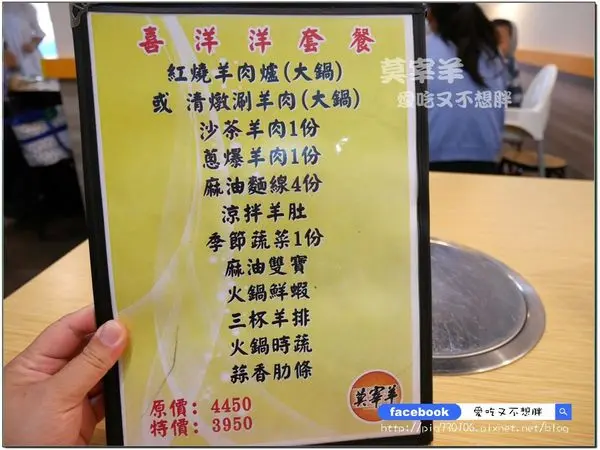 喜洋洋套餐
紅燒羊肉爐(大鍋)
或 清燉涮羊肉(大鍋)
沙茶羊肉1份
蔥爆羊肉1份
麻油麵線4份
涼拌羊肚
季節蔬菜1份
麻油雙寶
火鍋鮮蝦
三杯羊排
火鍋時蔬
蒜香肋條
原價: 4450
特價: 3950
莫宰羊
莫宰羊
愛吃又不想胖
facebook 愛吃又不想胖
http://pig730706.pixnet.net/blog